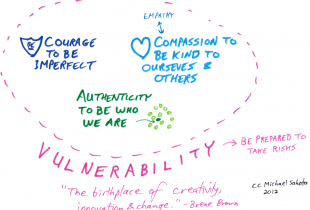 EMPATHY
COURAGE
TO BE
IMPERFECT
COMPASSION TO
BE KIND TO
OURSELVES &
OTHERS
AUTHENTICITY
TO BE WHO
WE ARE
VULNERABILITY
BE PREPARED TO
TAKE RISKS
CC Michael
2012
"The birthplace of creativity,
innovation & change." - Brene Brown